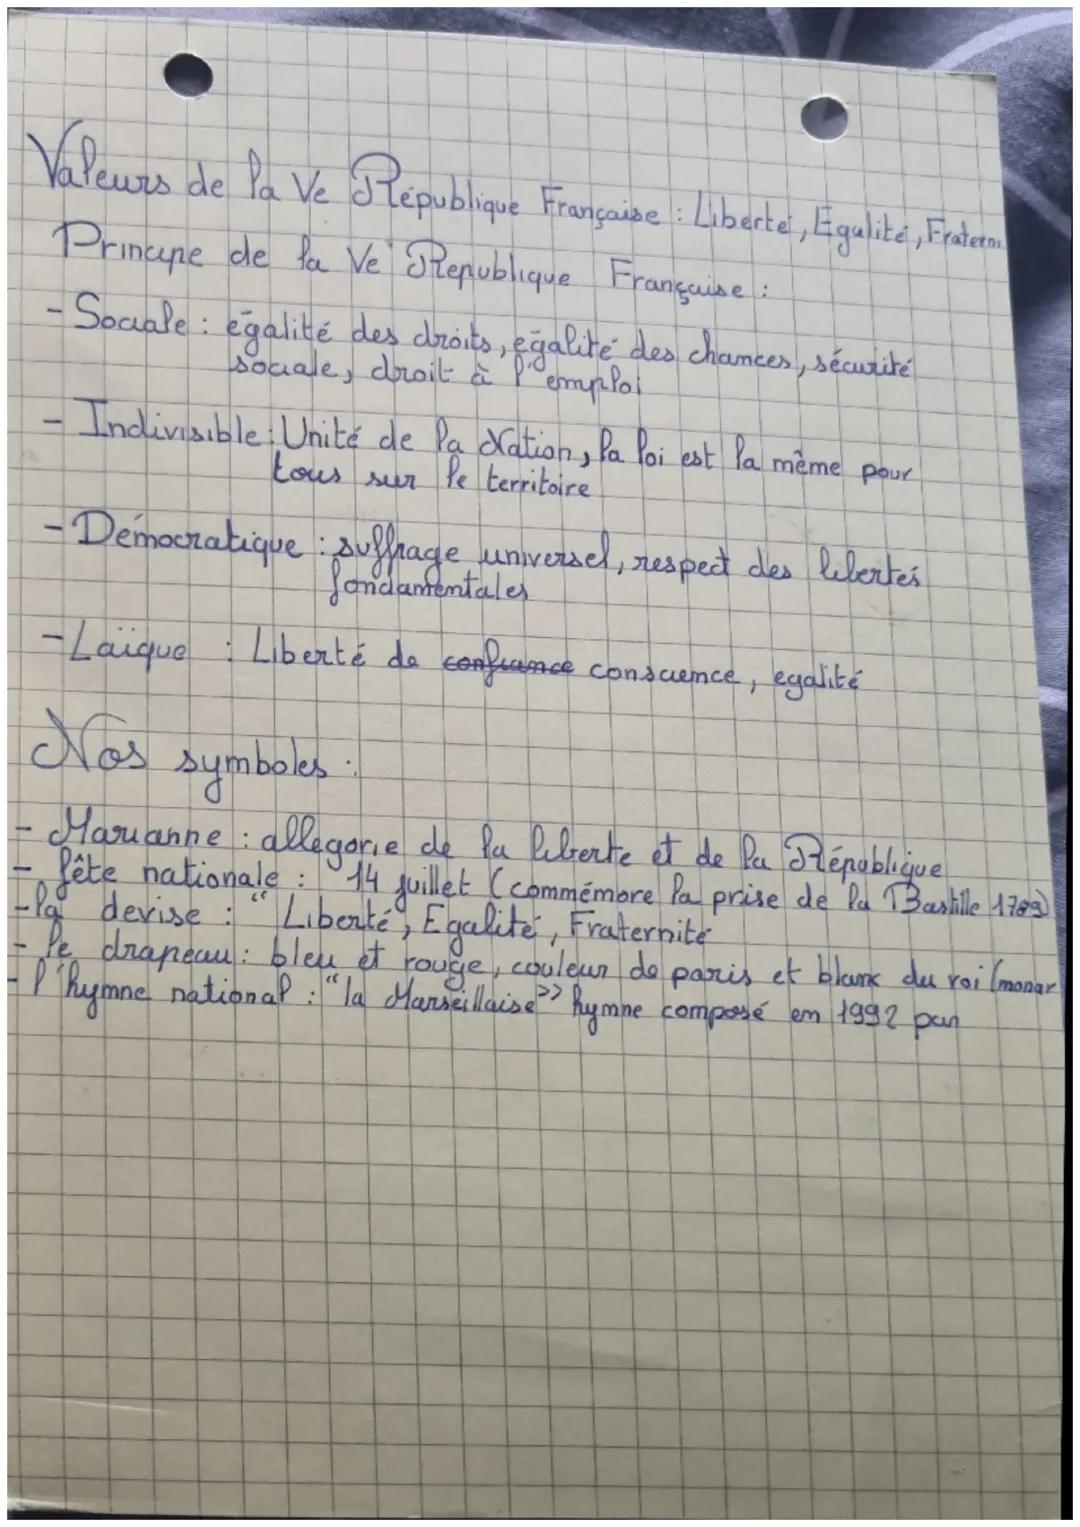 Valeurs de la Ve République Française : Liberté, Egalité, Fraterni
Principe de la Ve Republique Française :
- Sociale : égalité des droits, égalité des chances, sécurité
sociale, droit à l'emploi
- Indivisible : Unité de la Nation, la loi est la même pour
tous sur le territoire
- Démocratique : suffrage universel, respect des libertés
fondamentales
- Laïque : Liberté de confiance conscience, egalité
Nos symboles :
- Marianne : allegorie de la liberte et de la République
- fête nationale : 14 juillet (commémore la prise de la Bastille 1789)
- la devise : "Liberté, Egalité, Fraternité
- le drapeau : bleu et rouge, couleur de paris et blanc du roi (monar
- l'hymne national : "la Marseillaise" hymne composé en 1992 par